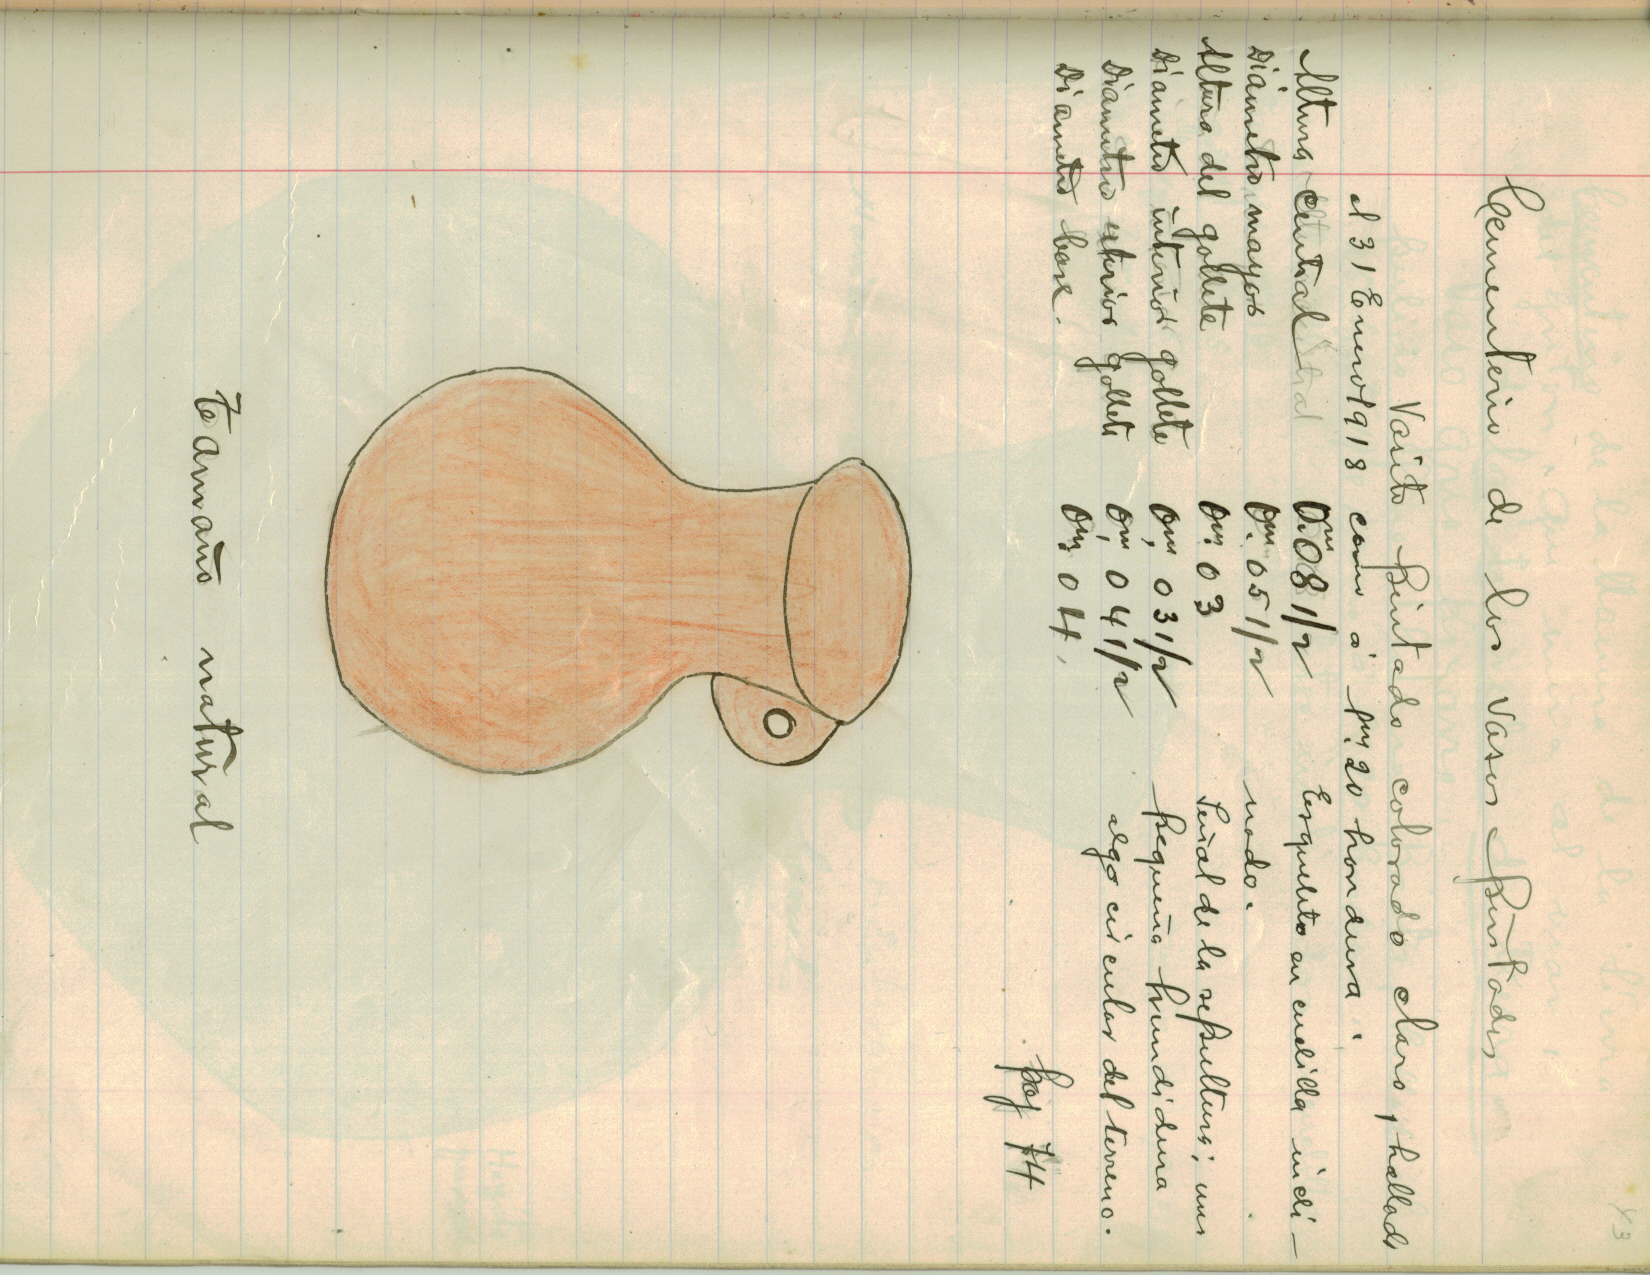 Cementerio de los vasos pintados
Vasito pintado colorado claro, hallado
el 31 Enero 1918 como á 1m,20 hondura.
Altura central 0m.08 1/2
Diámetro mayor 0m.05 1/2
Altura del gollete 0m.03
Diámetro interior gollete 0m,03 1/2
Diámetro exterior gollete 0m,04 1/2
Diámetro base. 0m,04,
Esqueleto en cuclilla incli-
nado.
Señal de la sepultura; una
pequeña hundidura
algo circular del terreno.
pág 74
Tamaño natural